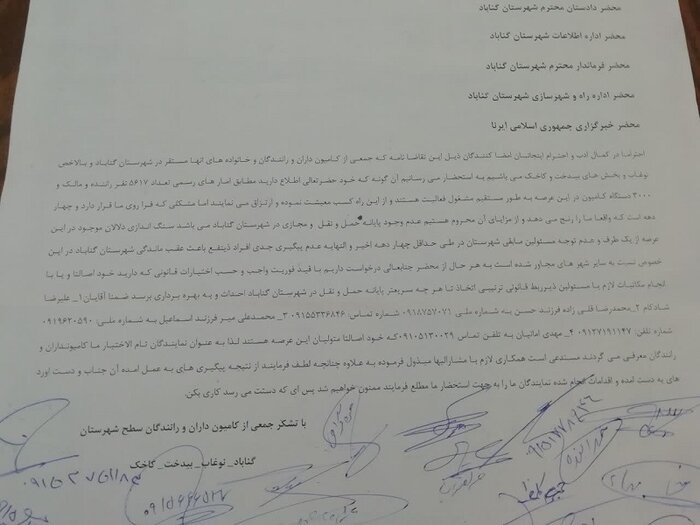 محضر دادستان محترم شهرستان گناباد
محضر اداره اطلاعات شهرستان گناباد
محضر فرماندار محترم شهرستان گناباد
محضر اداره راه و شهرسازی شهرستان گناباد
محضر خبرگزاری جمهوری اسلامی ایرنا
احتراما در کمال ادب و احترام اینجانبان امضا کنندگان ذیل این تقاضا نامه که جمعی از کامیون داران و رانندگان و خانواده های آنها مستقر در شهرستان گناباد و بالاخص
نوغاب و بخش های بیدخت و کاخک می باشیم به استحضار می رسانیم آن گونه که خود حضرتعالی اطلاع دارید مطابق امار های رسمی تعداد ۵۶۱۷ نفر راننده و مالک و
۳۰۰۰ دستگاه کامیون در این عرصه به طور مستقیم مشغول فعالیت هستند و از این راه کسب معیشت نموده و ارتزاق می نمایند اما مشکلی که فرا روی ما قرار دارد و چهار
دهه است که واقعا ما را رنج می دهد و از مزایای آن محروم هستیم عدم وجود پایانه حمل و نقل و مجازی در شهرستان گناباد می باشد سنگ اندازی دلالان موجود در این
عرصه از یک طرف و عدم توجه مسئولین سابق شهرستان در طی حداقل چهار دهه اخیر و التهایه عدم پیگیری جدی افراد ذینفع باعث عقب ماندگی شهرستان گناباد در این
خصوص نسبت به سایر شهر های مجاور شده است به هر حال از محضر جنابعالی درخواست داریم با قید فوریت واجب و حسب اختیارات قانونی که دارید خود اصالتا و یا با
انجام مکاتبات لازم با مسئولین ذیربط قانونی ترتیبی اتخاذ تا هر چه سریعتر پایانه حمل و نقل در شهرستان گناباد احداث و به بهره برداری برسد ضمنا آقایان ۱_ علیرضا
شادکام ۲_محمدرضا قلی زاده فرزند حسن به شماره ملی ۰۹۱۸۷۵۷۰۷۱ شماره تماس: ۰۹۱۵۵۳۳۶۸۴۶ ۳_ محمدعلی میر فرزند اسماعیل به شماره ملی: ۰۹۱۹۶۲۰۵۹۰
شماره تلفن: ۰۹۱۲۷۱۹۱۱۴۷ ۴_ مهدی امانیان به تلفن تماس ۰۹۱۰۵۱۳۰۰۲۹ که خود اصالتا متولیان این عرصه هستند لذا به عنوان نمایندگان تام الاختیار ما کامیونداران و
رانندگان معرفی می گردند مستدعی است همکاری لازم با مشارالیها مبذول فرموده به علاوه چنانچه لطف فرمایند از نتیجه پیگیری های به عمل امده آن جناب و دست اورد
های به دست امده و اقدامات انجام شده نمایندگان ما را به جهت استحضار ما مطلع فرمایند ممنون خواهیم شد پس ای که دستت می رسد کاری بکن.
با تشکر جمعی از کامیون داران و رانندگان سطح شهرستان
گناباد_ نوغاب_ بیدخت_ کاخک